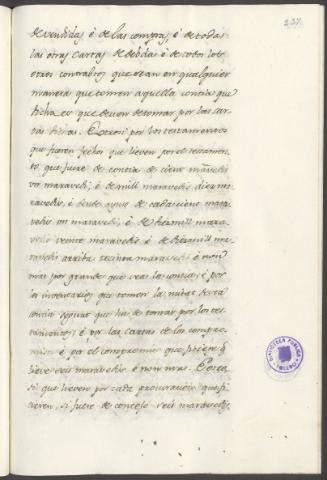 237
de vendidas é de las compras, é de todas
las otras cartas de debda é de todos los
otros contrabtos que sean en qualquier
manera que tomen aquella contia que
dicha es que deven de tomar por las car-
tas dichas. Otrosi por los testamentos
que fueren fechos que lieven por el testamen-
to, que fuere de contia de cient maravedis
un maravedi, é de mill maravedis diez ma-
ravedis, é dende ayuso de cada ciento mara-
vedis un maravedi, é de diez mill mara-
vedis veinte maravedis é de diez mill ma-
ravedis arriba treinta maravedis é non
mas por grande que sea la contia; é por
los inventarios que tomen la mitat desta
contia segunt que han de tomar por los tes-
tamentos; é por las cartas de los compro-
misos é por el compromiso que ficieren
lieve seis maravedis é non mas. Otro-
si que lieven por cada procuracion que fi-
cieren, si fuere de concejo seis maravedis,
BIBLIOTECA PUBLICA
TOLEDO